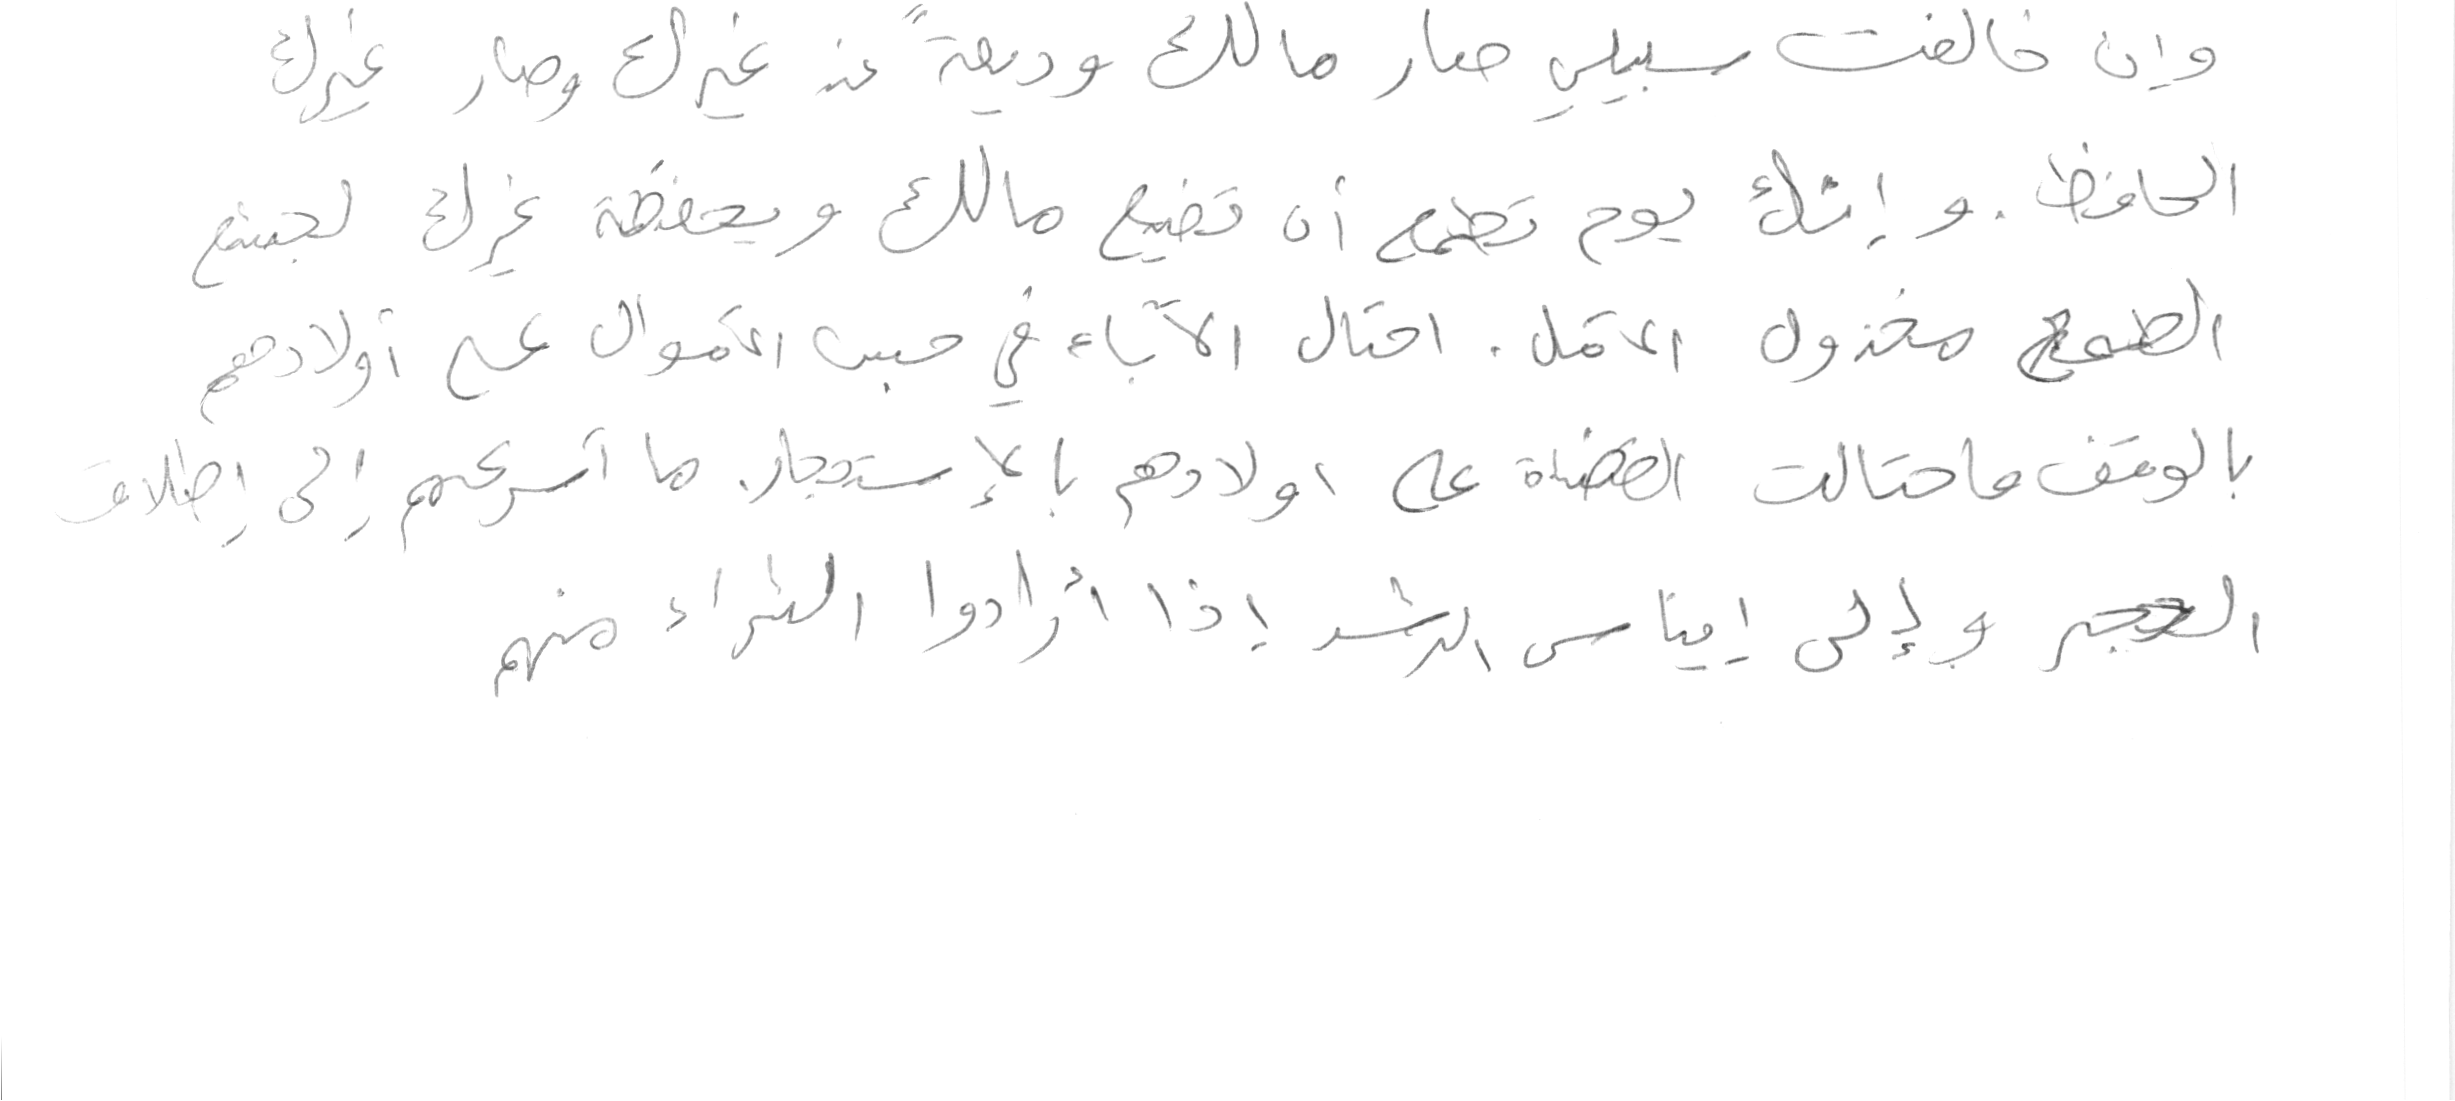 وإن خالفت سبيلي صار مالك وديعةً عند غيرك وصار غيرك
الحافظ. و إنك يوم تطمع أن تضيع مالك ويحفظة غيرك لجشع
الطمع مخذول الأمل. احتال الآباء في حبس الأموال على أولادهم
بالوقف فاحتالت القضاة على اولادهم بالإستحجار. ما أسرعهم إلى إطلاق
الحجر وإلى إيناس الرشد إذا أرادوا الشراء منهم